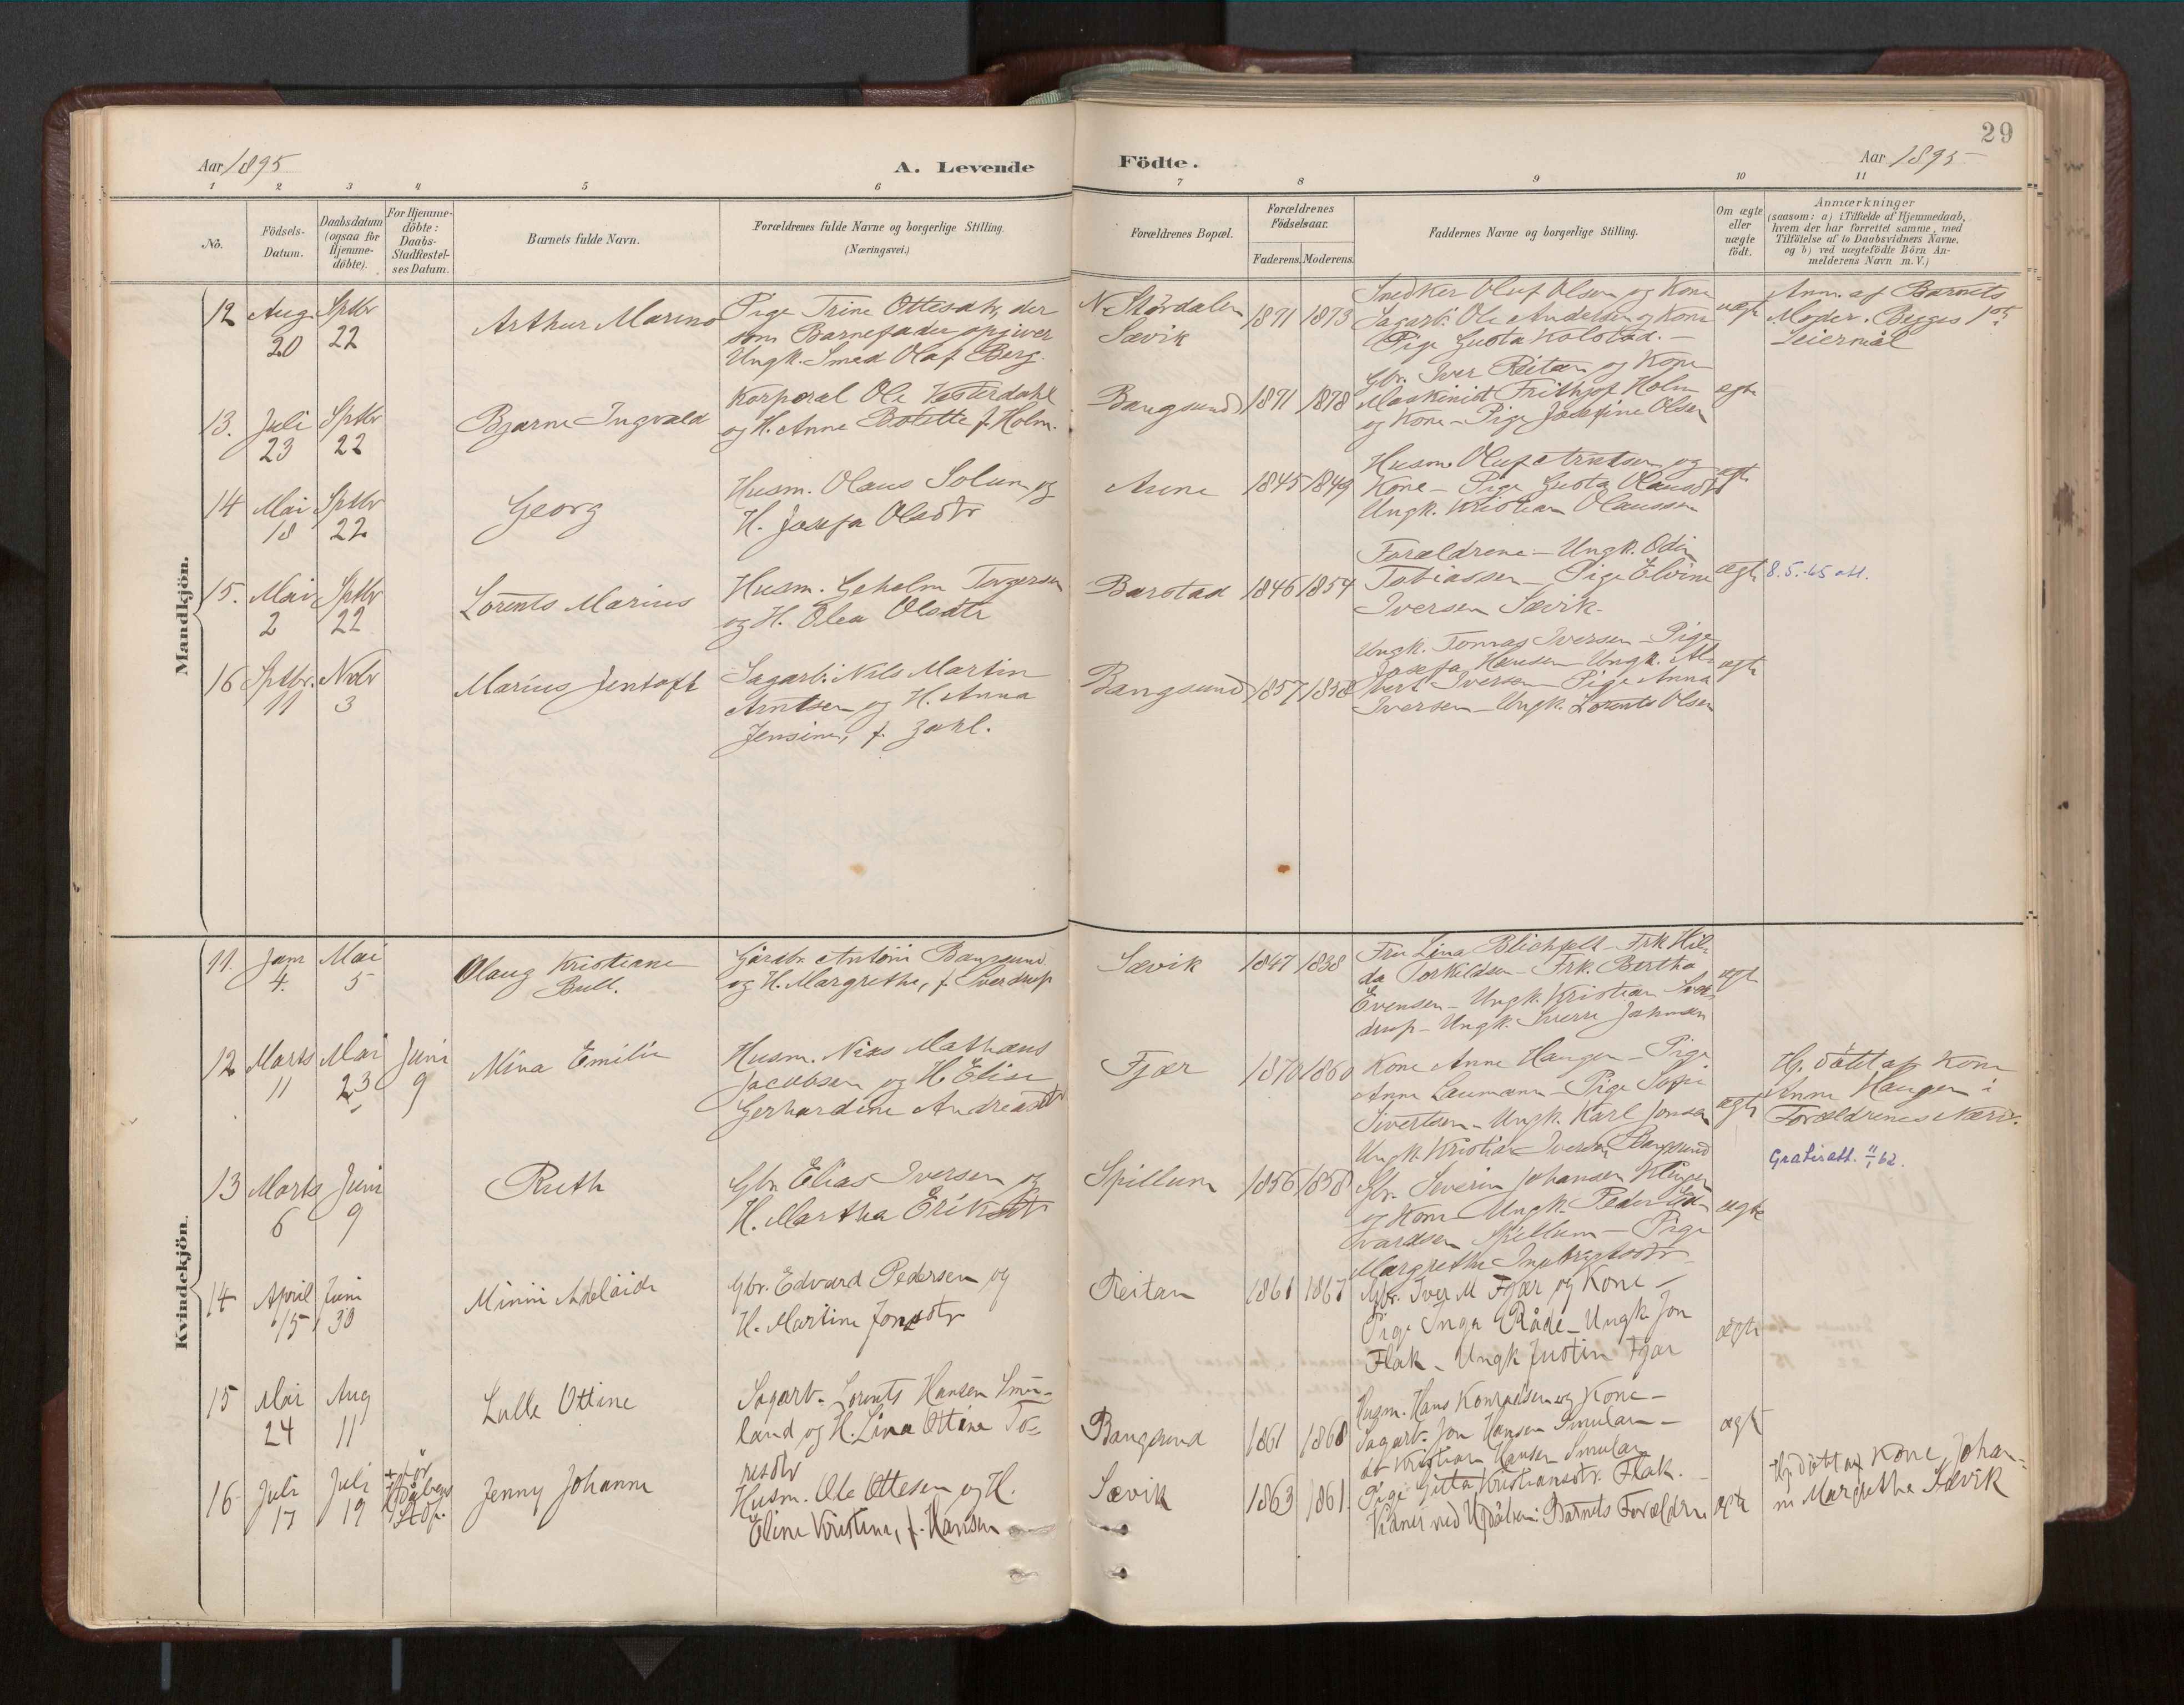 29
Aar 1895
A. Levende
Födte.
Aar 1895
1 2 3 4 5 6 7 8 9 10 11
No.
Födsels-
Datum.
Daabsdatum
(ogsaa for
Hjemme-
döbte).
For Hjemme-
döbte:
Daabs-
Stadfæstel-
ses Datum.
Barnets fulde Navn.
Forældrenes fulde Navne og borgerlige Stilling.
(Næringsvei.)
Forældrenes Bopæl.
Forældrenes
Födselsaar.
Faderens. Moderens.
Faddernes Navne og borgerlige Stilling.
Om ægte
eller
uægte
födt.
Anmærkninger
(saasom: a) i Tilfælde af Hjemmedaab,
hvem der har forrettet samme, med
Tilföielse af to Daabsvidners Navne,
og b) ved uægtefödte Börn An-
melderens Navn m. V.)
Mandkjön.
12 Aug. 20
Sptbr 22
Arthur Marino
Pige Trine Ottesdtr, der
som Barnefader opgiver
Ungk. Smed Olaf Berg.
N. Stördalen
Sævik
1871 1873
Snedker Oluf Olsen og Kone
Sagarb. Ole Andersen og Kone
Pige Gusta Kolstad. -
uægte
Anm. af Barnets
Moder. Begges 1ste
Leiermål
13. Juli 23
Sptbr 22
Bjarne Ingvald
Korporal Ole Vesterdahl
og H. Anne Botette f. Holm.
Bangsund
1871 1878
Gbr. Iver Reitan og Kone
Maskinist Frithjof Holm
og Kone - Pige Josefine Olsen
ægte
14 Mai 18
Sptbr 22
Georg
Husm. Olaus Solum og
H. Josefa Olsdtr
1845 1849
Husm. Oluf Arntsen og
Kone - Pige Gusta Olausdtr
Ungk. Kristian Olaussen
ægte
15. Mai 2
Sptbr 22
Lorents Marius
Husm. Geholm Torgersen
og H. Olea Olsdtr
Barstad
1846 1854
Forældrene - Ungk. Odin
Tobiassen - Pige Elvine
Iversen Sævik.
ægte
8.5.-65 att.
16 Sptbr. 11
Novbr 3
Marius Jentoft
Sagarb. Nils Martin
Arntsen og H. Anna
Jensine, f. Zahl.
Bangsund
1857 1858
Ungk. Tomas Iversen - Pige
Josefa Hansen - Ungk. Al-
bert Iversen - Pige Anna
Iversen - Ungk. Lorents Olsen
ægte
Kvindekjön.
11. Janr 4.
Mai 5
Olaug Kristiane
Bull.
Gårdbr. Antoni Bangsund
og H. Margrethe, f. Sverdrup
Sævik
1847 1858
Fru Lina Blichfelt - Frk Hil-
da Torkildsen - Frk. Bertha
Evensen - Ungk. Kristian Sver-
drup - Ungk. Sverre Johnsen
ægte
12 Marts 11
Mai 23
Juni 9
Mina Emilie
Husm. Nias Mathæus
Jacobsen og H. Elise
Gerhardine Andreasdtr
Fjær
1870 1860
Kone Anne Haugen - Pige
Anne Laumann - Pige Sofie
Sivertsen - Ungk. Karl Jonsen
Ungk. Kristian Iversen Bangsund
ægte
Hj. döbt af Kone
Anne Haugen i
Forældrenes Nærv.
13 Marts 6
Juni 9
Ruth
Gbr. Elias Iversen og
H. Martha Eriksdtr
Spillum
1856 1858
Gbr. Severin Johansen Klingen
og Kone - Ungk. Peder Ed-
vardsen Spillum - Pige
Margrethe Ingebrigtsdtr
ægte
Gratisatt. 11/1 62.
14 April 15
Juni 30
Minni Adelaide
Gbr. Edvard Pedersen og
H. Martine Jonsdtr
Reitan
1861 1867
Gbr. Iver M Fjær og Kone -
Pige Inga Råde - Ungk. Jon
Flak - Ungk Justin Fjær
ægte
15 Mai 24
Aug 11
Lulle Ottine
Sagarb. Lorents Hansen Smu-
land og H. Lina Ottine To-
resdtr
Bangsund
1861 1868
Husm. Hans Konradsen og Kone -
Sagarb. Jon Hansen Smulan -
do Kristian Hansen Smulan
Pige Gitta Kristiansdtr. Flak. -
ægte
16 Juli 17
Juli 19
+ för
Dåbens
Stdf.
Jenny Johanne
Husm. Ole Ottesen og H.
Eline Kristine, f. Hansen
Sævik
1863 1861.
Vidner ved Hjdåben: Barnets Forældre
ægte
Hj. döbt af Kone Johan-
ne Margrethe Sævik